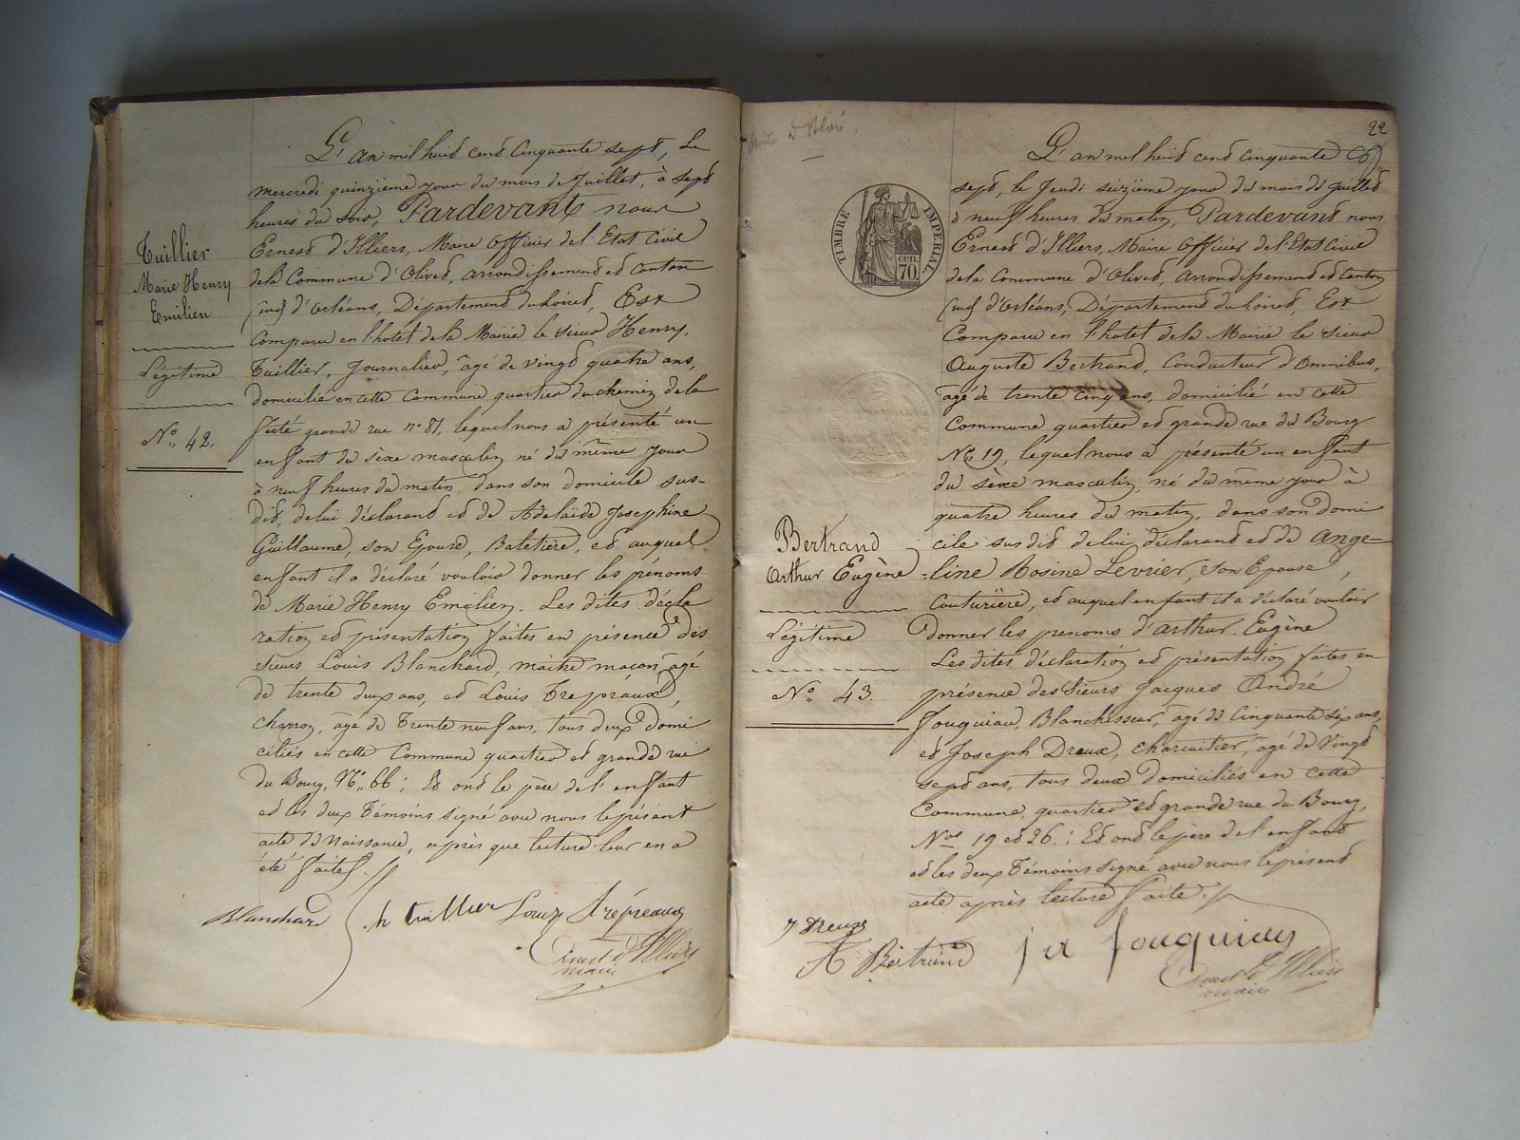 Tuillier
Marie Henry
Emilien
Légitime
No. 42.
L'an mil huit cent cinquante sept, Le
mercredi quinzième jour du mois de Juillet, à sept
heures du soir, Pardevant nous
Ernest d'Illiers, Maire officier de l'Etat Civil
de la Commune d'Olivet, arrondissement et canton
sud d'Orléans, Département du Loiret, Est
Comparu en l'hôtel de la Mairie le sieur Henry,
Tuillier, Journalier, âgé de vingt quatre ans,
domicilié en cette Commune quartier du chemin de la
grande rue no 87, lequel nous a présenté un
enfant du sexe masculin né du même jour
à neuf heures du matin dans son domicile sus-
dit, de lui déclarant et de Adelaïde Josephine
Guillaume, son Epouse, et auquel
enfant il a déclaré vouloir donner les prénoms
de Marie Henry Emilien. Les dites décla
ration et présentation faites en présence des
sieurs Louis Blanchard, maître maçon, agé
de trente deux ans, et Louis Trépréaux,
charron, agé de trente neuf ans, tous deux domi
ciliés en cette Commune quartier et grande rue
du Bourg, No. 66; Et ont le père de l'enfant
et les deux Témoins signé avec nous le présent
acte de Naissance, après que lecture leur en a
été faite.
Blanchard h tuillier Louis trépreaux
Ernest d'Illiers
maire
22
TIMBRE IMPERIAL
70
Bertrand
Arthur Eugène
Légitime
No. 43.
L'an mil huit cent cinquante
sept, le Jeudi seizième jour du mois de juillet
à neuf heures du matin, Pardevant nous
Ernest d'Illiers, Maire officier de l'Etat Civil
de la Commune d'Olivet, arrondissement et Canton
sud d'Orléans, Département du Loiret, Est
Comparu en l'hôtel de la Mairie le sieur
Auguste Bertrand, Conducteur d'omnibus,
âgé de trente cinq ans, domicilié en cette
Commune quartier et grande rue du Bourg
No. 19, lequel nous a présenté un enfant
du sèxe masculin, né du même jour à
quatre heures du matin, dans son domi
cile sus dit de lui déclarant et de Ange-
-line Rosine Levrier, son Epouse,
Couturière, et auquel enfant il a déclaré vouloir
donner les prenoms d'arthur Eugène
Les dites déclaration et présentation faites en
présence des Sieurs Jacques André
Fouquiau, Blanchisseur, âgé de Cinquante six ans,
et Joseph Dreux, charcutier, âgé de Vingt
sept ans, tous deux domiciliés en cette
Commune, quartier et grande rue du Bourg,
Nos 19 et 26.; Et ont le père de l'enfant
et les deux témoins signé avec nous le présent
acte après lecture faite.
J Dreux
A Bertrand j a fouquiau
Ernest d'Illiers
maire